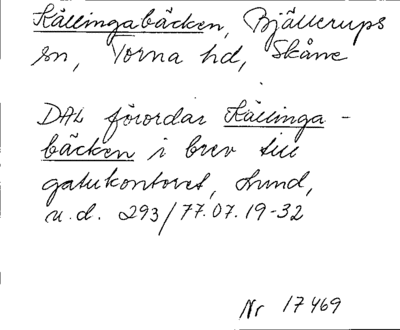 Källingabäcken, Bjällerups
sn, Torna hd, Skåne
DAL förordar Källinga-
bäcken i brev till
gatukontoret, Lund,
u.d. 293/77.07.19-32
Nr 17469